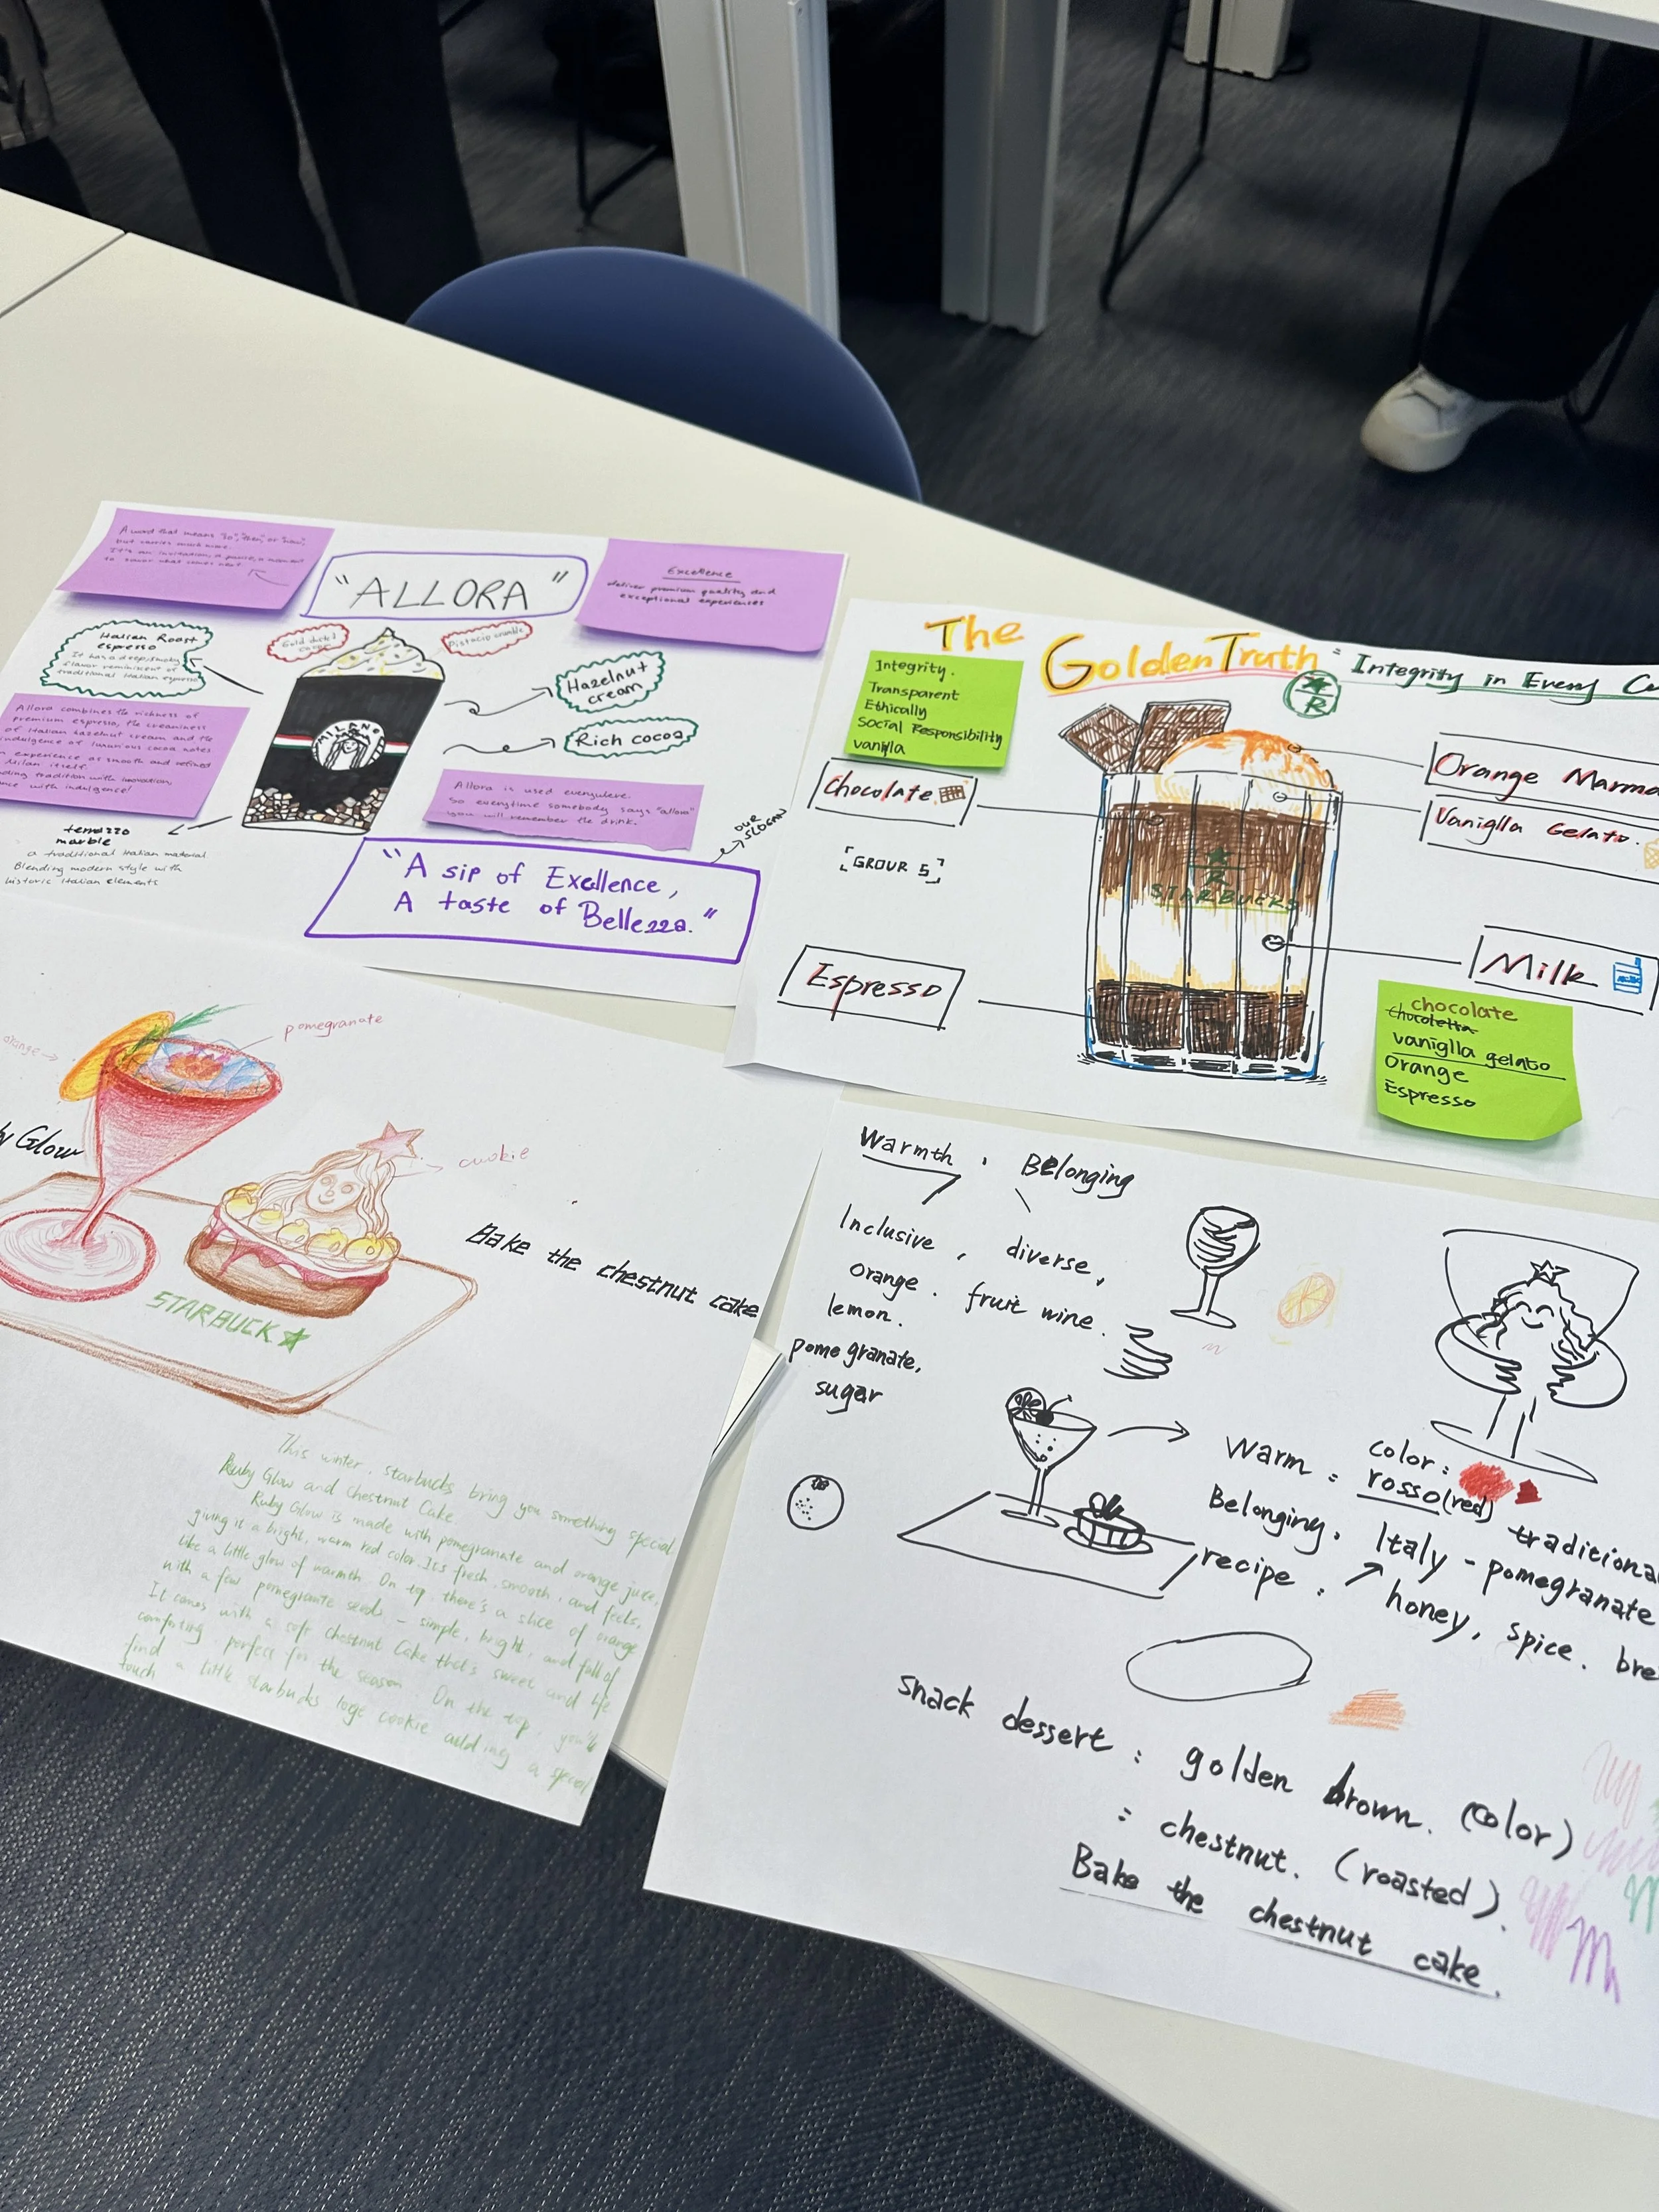 A word that means "so", "then", or "now",
but carries much more.
It's an invitation, a pause, a moment
to savor what comes next
"ALLORA"
Excellence
deliver premium quality and
exceptional experiences
Italian Roast
espresso
It has a deep, smoky
flavor reminiscent of
traditional Italian espresso
Gold dusted
Pistacio crumble
Hazelnut
cream
Rich cocoa
MILANO
Allora combines the richness of
premium espresso, the creaminess
of Italian hazelnut cream and the
indulgence of luxurious cocoa notes
experience as smooth and refined
Milan itself.
tradition with innovation,
with indulgence!
terrazzo
marble
a traditional Italian material
Blending modern style with
historic Italian elements
Allora is used everywhere.
So everytime somebody says "allora"
you will remember the drink.
OUR
SLOGAN
"A sip of Exellence,
A taste of Bellezza."
The Golden Truth: Integrity in Every
Integrity.
Transparent
Ethically
Social Responsibility
vanilla
R
Chocolate
[GROUR 5]
Espresso
Orange
Vaniglla Gelato.
Milk
STARBUCKS
R
chocolate
chocoletta
vaniglla gelato
Orange
Espresso
orange
pomegranate
Glow
cookie
STARBUCK
Bake the chestnut cake
This winter, starbucks bring you something special
Ruby Glow and Chestnut Cake
Ruby Glow is made with pomegranate and orange juice,
giving it a bright, warm red color. It's fresh, smooth, and feels,
like a little glow of warmth. On top, there's a slice of orange
with a few pomegranate seeds - simple, bright, and full of
It comes with a soft Chestnut Cake that's sweet and
comforting, perfect for the season. On the top, you'll
find a little starbucks logo cookie adding a special
touch
Warmth, Belonging
Inclusive, diverse,
orange. fruit wine.
lemon.
pomegranate,
sugar
Warm: color:
rosso(red)
Belonging. Italy - traditional
recipe: pomegranate
honey, spice.
snack dessert: golden brown. (color)
: chestnut. (roasted).
Bake the chestnut cake.